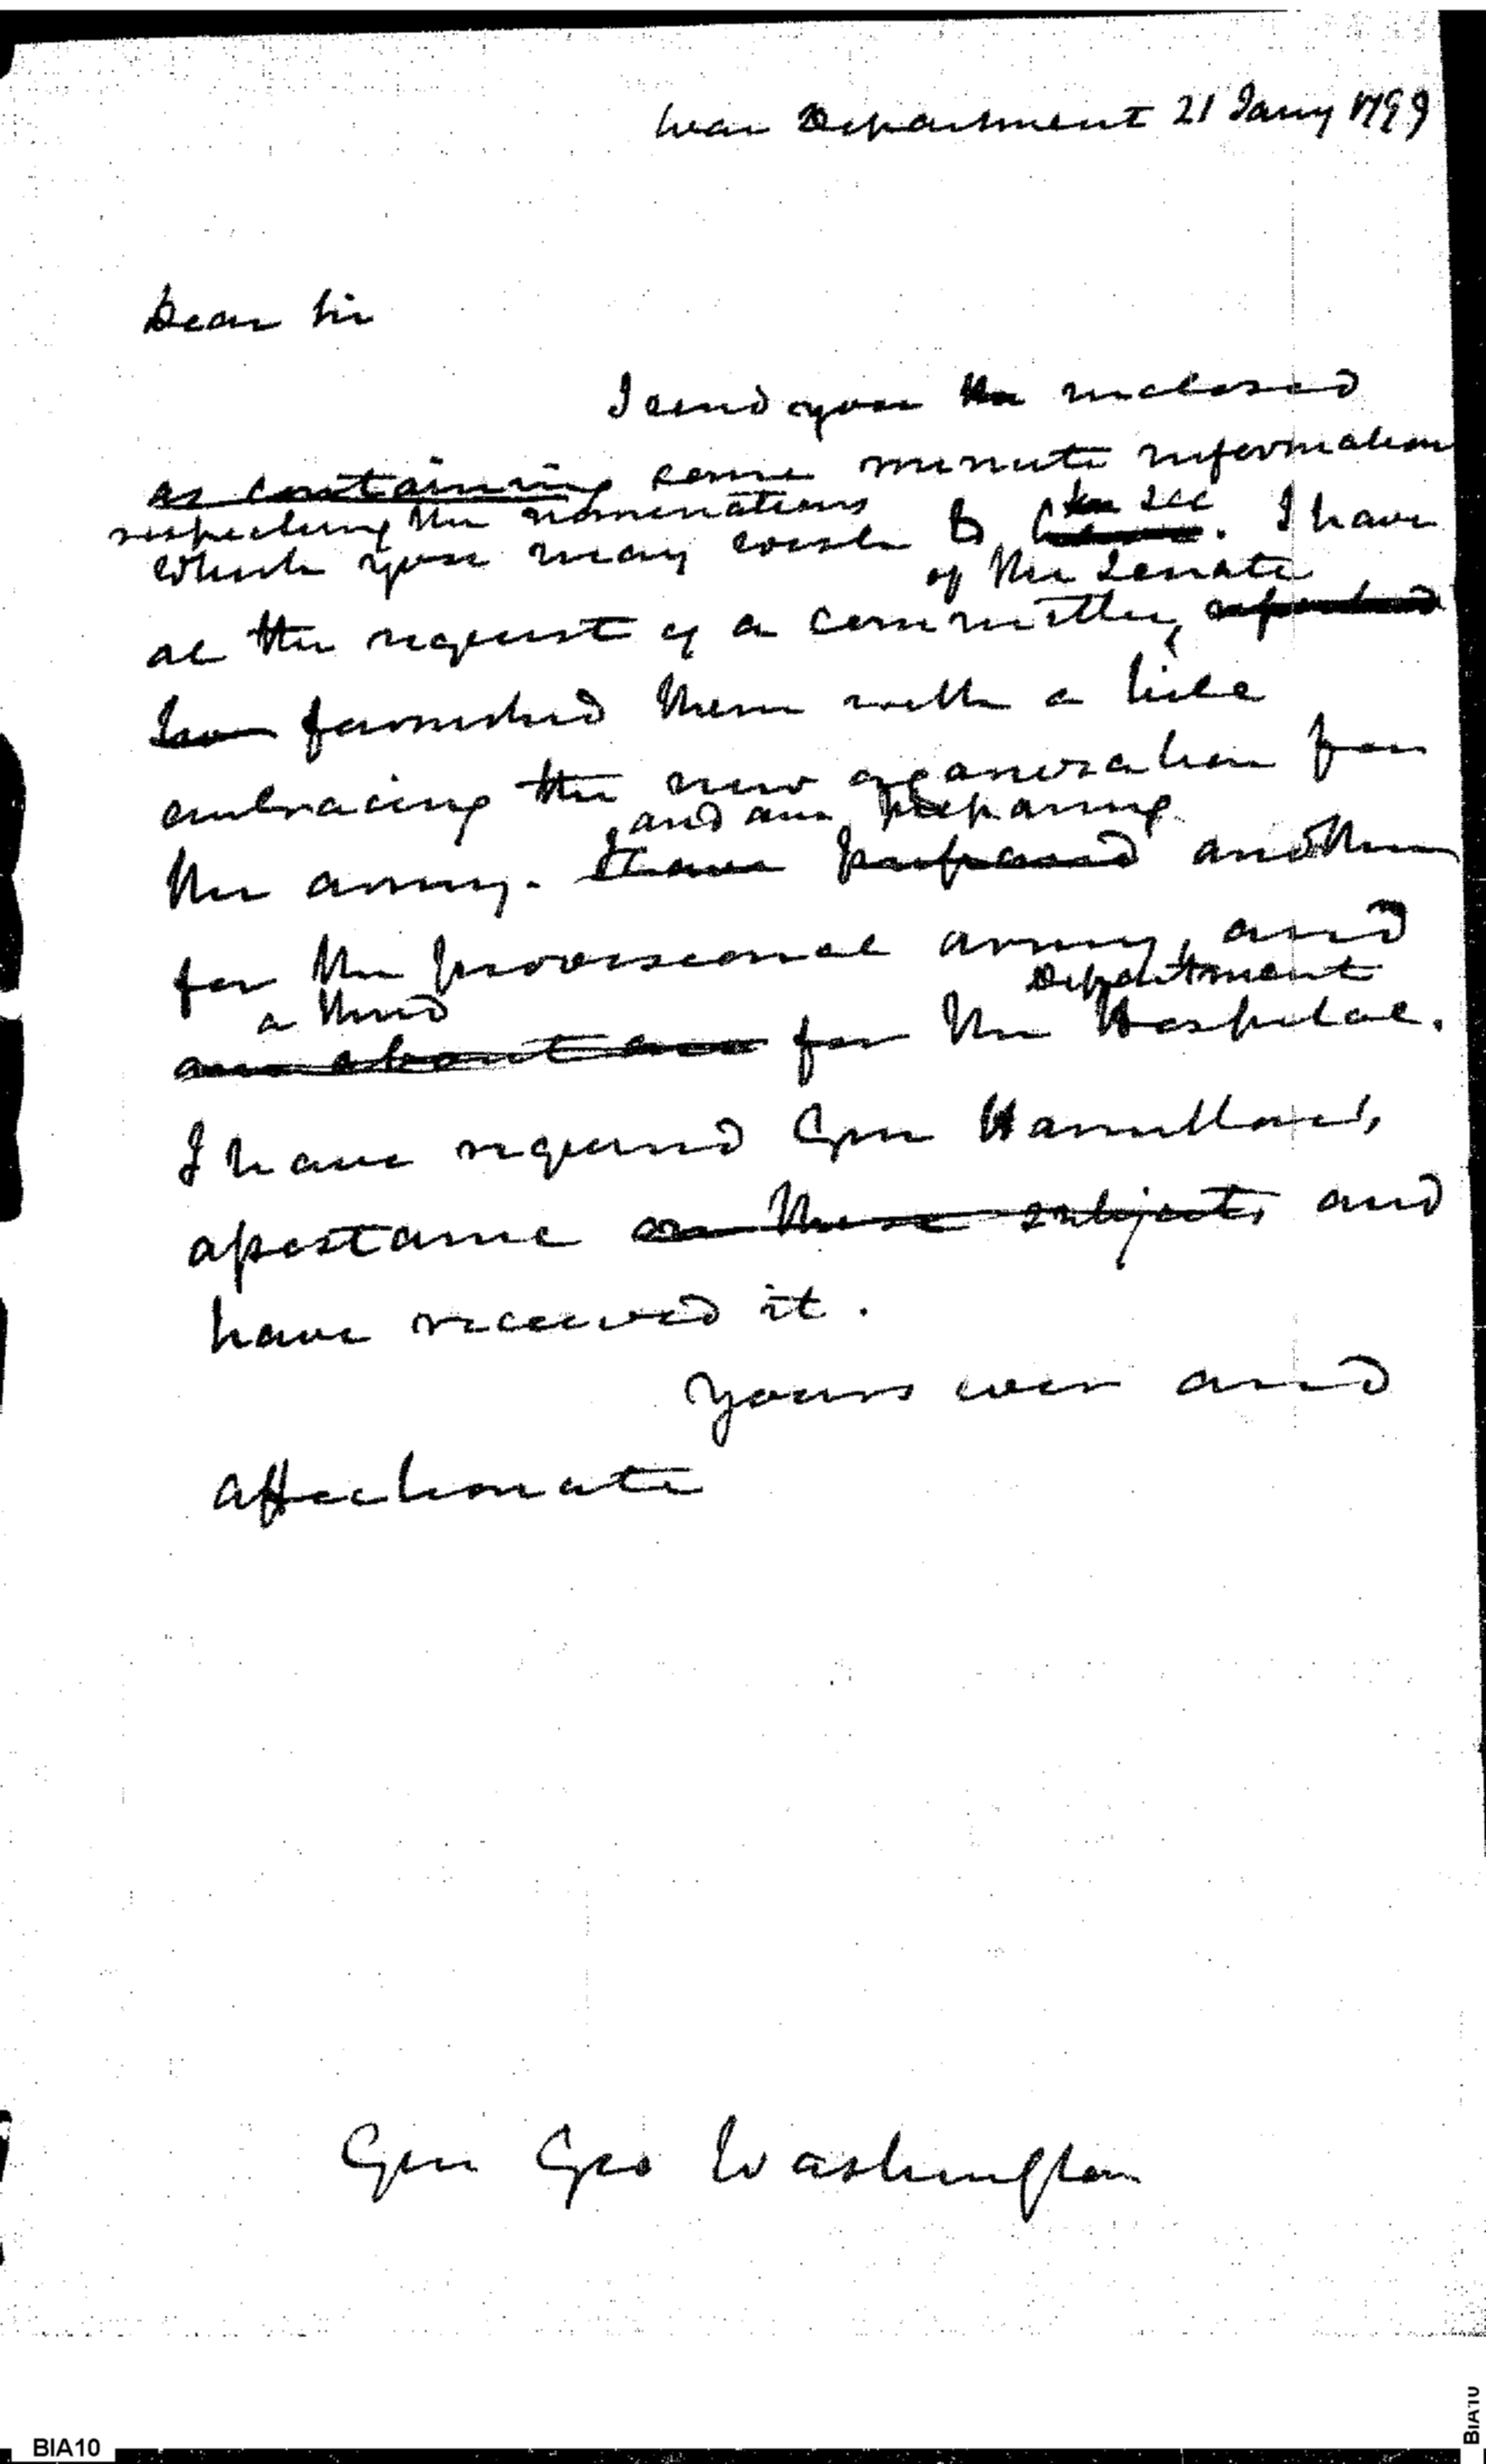 War Department 21 Jany 1799
Dear Sir
I send you the inclosed
as containing some minute information
respecting the nominations
which you may wish to see. I have
of the Senate
at the request of a committee,
furnished them with a bill
embracing the new organization for
and am preparing
the army. have prepared another
for the provisional army, and
a third Department
am about one for the Hospital.
I have required Gen Hamilton's
apostame on these subjects and
have received it.
Yours ever and
affectionate
Gen Geo Washington
BIA10
BIA10